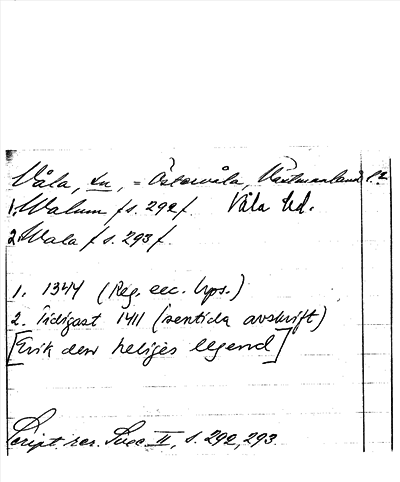 Våla, sn, = Östervåla, Västmanland l.
1. Walum f s. 292 f. Våla hd.
2. Wala f s. 293 f.
1. 1344 (Reg. ecc. Ups.)
2. Tidigast 1411 (sentida avskrift)
[Erik den heliges legend]
Script. rer. Suec. II, s. 292, 293